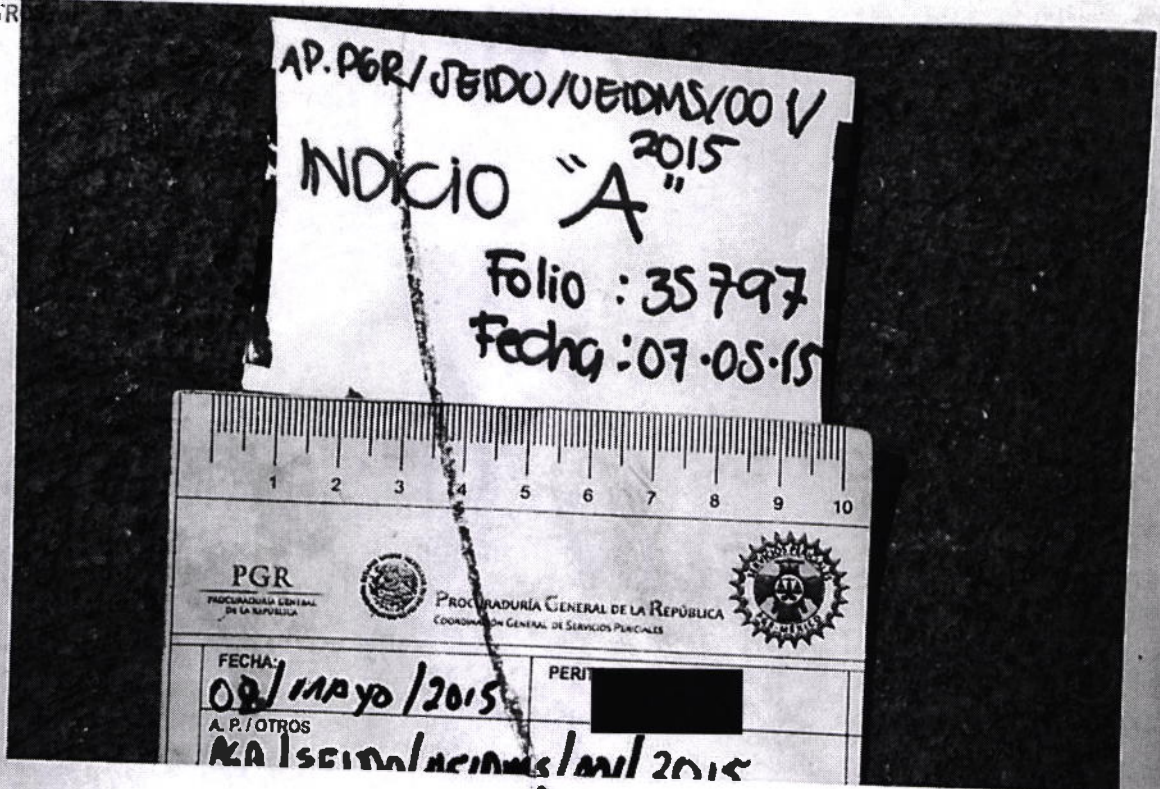 AP. PGR/SEIDO/UEIDMS/001/
2015
INDICIO "A"
Folio : 35797
Fecha : 07·05·15
1 2 3 4 5 6 7 8 9 10
PGR
PROCURADURÍA GENERAL
DE LA REPÚBLICA
PROCURADURÍA GENERAL DE LA REPÚBLICA
COORDINACIÓN GENERAL DE SERVICIOS PERICIALES
SERVICIOS PERICIALES
PGR-MÉXICO
FECHA:
08/MAYO/2015
PERIT
A. P. / OTROS
/SEIDO/UEIDMS/001/2015